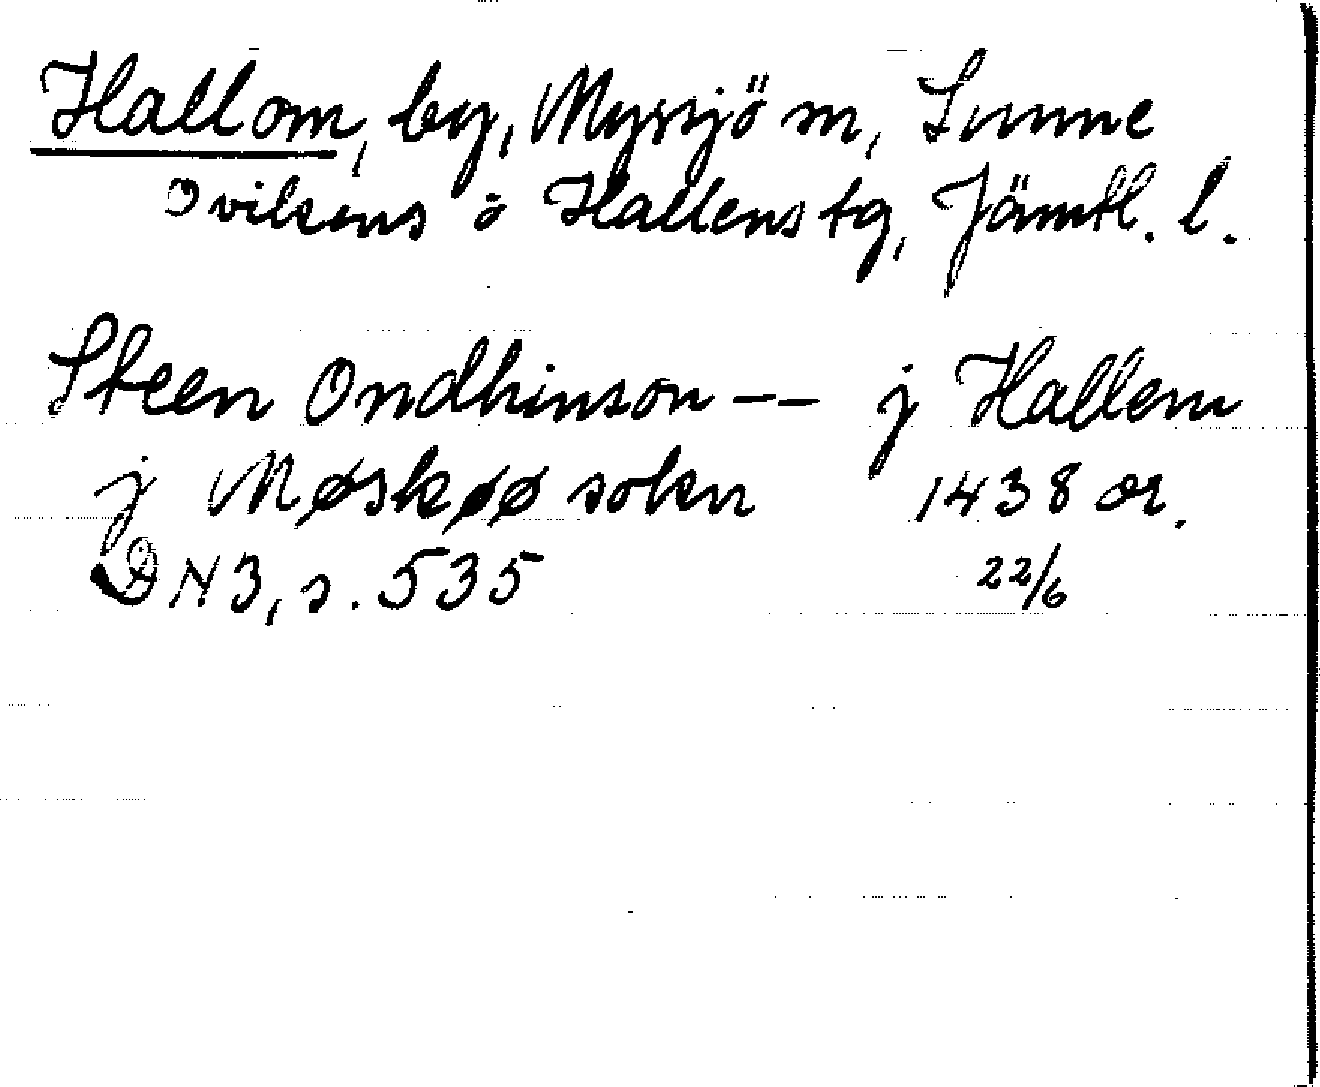 Hallom, by, Myssjö sn, Sunne
Ovikens o Hallens tg, Jämtl. l.
Steen Ondhinson -- j Hallem
j Møskøø sokn 1438 or.
DN 3, s. 535 22/6